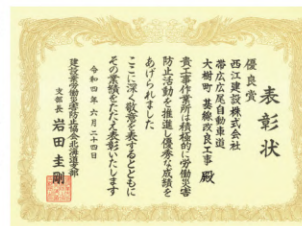 表彰状
優良賞
西江建設株式会社
帯広広尾自動車道
大樹町 萠線改良工事 殿
貴工事作業所は積極的に労働災害
防止活動を推進し優秀な成績を
あげられました
ここに深く敬意を表するとともに
その業績をたたえ表彰いたします
令和四年六月二十四日
建設業労働災害防止協会北海道支部
支部長 岩田圭剛